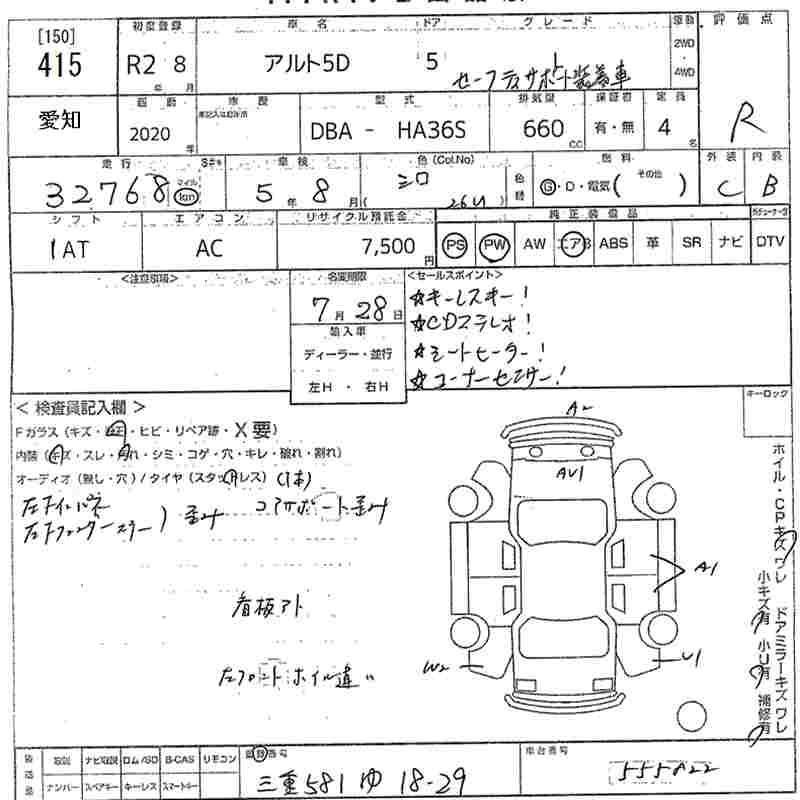 [150]
415
初度登録 車名 ドア グレード 駆動 評価点
R2 8 アルト5D 5 セーフティサポート装着車
年 月
2WD
4WD
愛知
車歴 型式 排気量 定員
2020 年 DBA - HA36S 660 CC 有・無 4 名
R
走行 車検 色(Col.No) 燃料 外装 内装
32768 マイル km 5 年 8 月 シロ 26U G・D・電気( その他 ) C B
シフト エアコン リサイクル預託金 純正装備品
1AT AC 7,500 円 PS PW AW エアB ABS 革 SR ナビ DTV
<注意事項> 名変期限 <セールスポイント>
7 月 28 日
☆キーレスキー!
☆CDステレオ!
☆シートヒーター!
☆コーナーセンサー!
輸入車
ディーラー・並行
左H ・ 右H
キーロック
< 検査員記入欄 >
Fガラス(キズ・ ・ヒビ・リペア跡・X要)
内装(キズ・スレ・ ・シミ・コゲ・穴・キレ・破れ・割れ)
オーディオ(無し・穴)/タイヤ(スタッドレス) (1本)
コアサポート歪み
歪み
看板アト
左フロントホイル違い
A2
AU1
A1
W2
U1
ホイル・CPキズ ワレ ドアミラーキズ ワレ
小キズ有 小U有 補修有
取説 ナビ取説 ロム/SD B-CAS リモコン 登録番号 車台番号
ナンバー スペアキー キーレス スマートキー
三重 581 ゆ 18-29